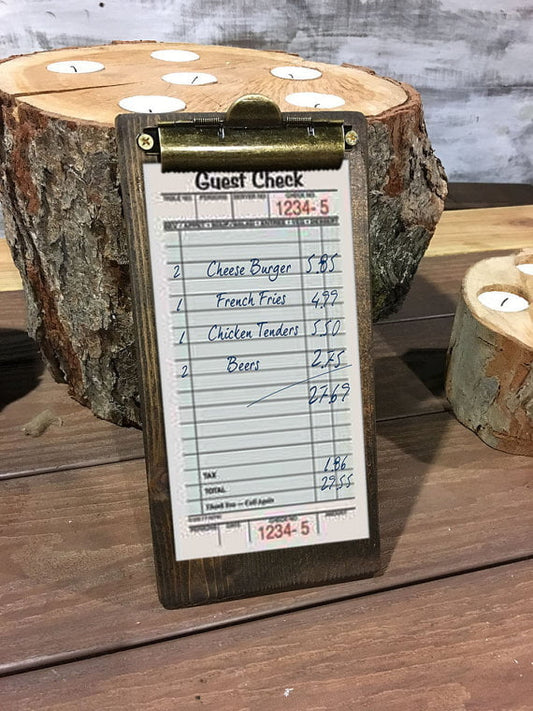 Guest Check
TABLE NO. PERSONS SERVER NO. CHECK NO.
1234- 5
2 Cheese Burger 5.85
1 French Fries 4.99
1 Chicken Tenders 5.50
2 Beers 2.75
27.69
TAX 1.86
TOTAL 29.55
Thank You — Call Again
PERSONS DATE CHECK NO.
1234- 5